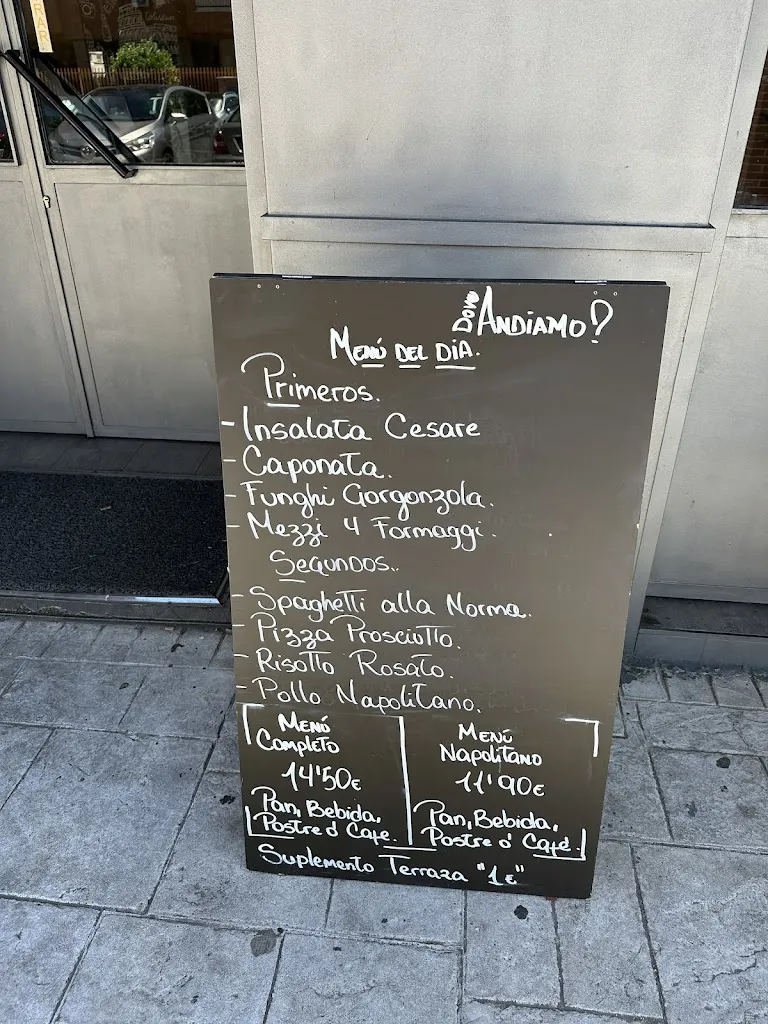 Dove ANDIAMO?
MENÚ DEL DIA.
Primeros.
- Insalata Cesare
- Caponata.
- Funghi Gorgonzola.
- Mezzi 4 Formaggi.
Segundos..
- Spaghetti alla Norma.
- Pizza Prosciutto.
- Risotto Rosato.
- Pollo Napolitano.
MENÚ
COMPLETO
14'50€
Pan, Bebida,
Postre ó Cafe.
MENÚ
NAPOLITANO
11'90€
Pan, Bebida,
Postre ó Café.
Suplemento Terraza "1€"